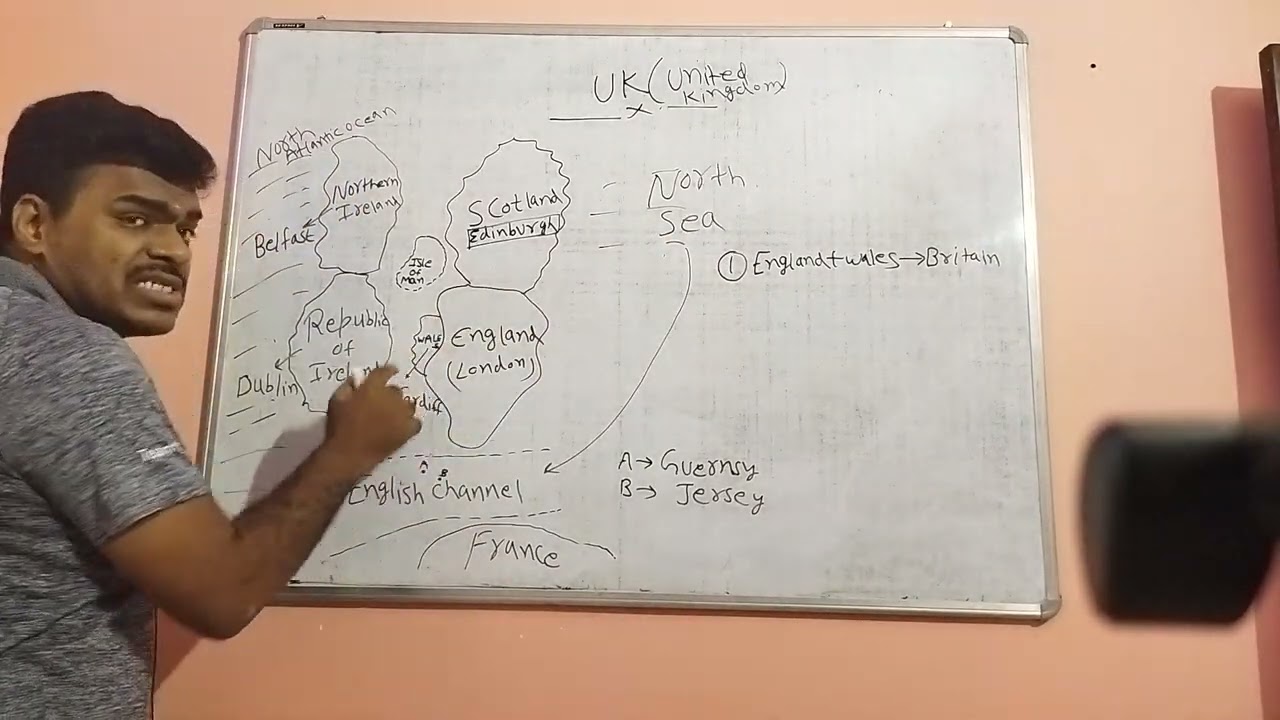 UK (United
Kingdom)
North
Atlantic ocean
Northern
Ireland
Belfast
Scotland
Edinburgh
North
Sea
Isle
of
Man
① England + wales → Britain
Republic
of
Dublin
WALES
England
(London)
A → Guernsy
B → Jersey
A
B
English channel
France